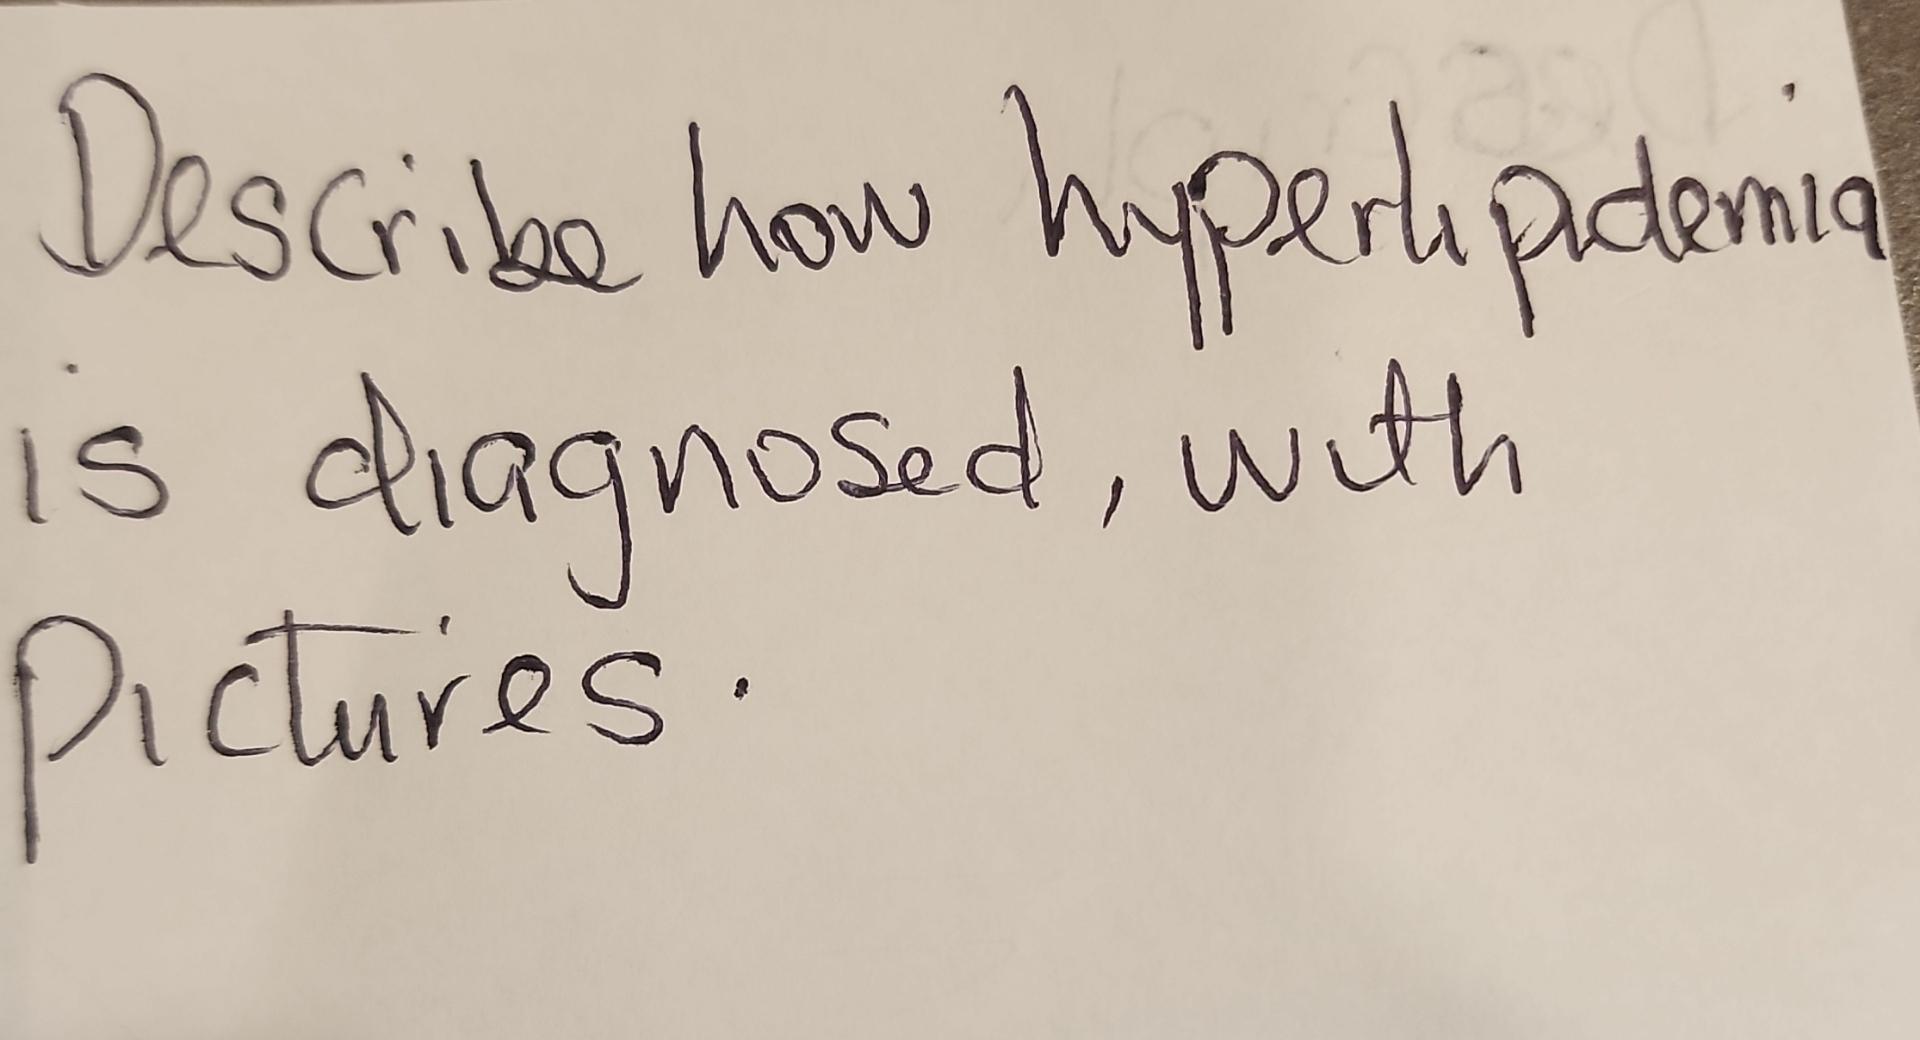 Describe how hyperlipidemia
is diagnosed, with
pictures.